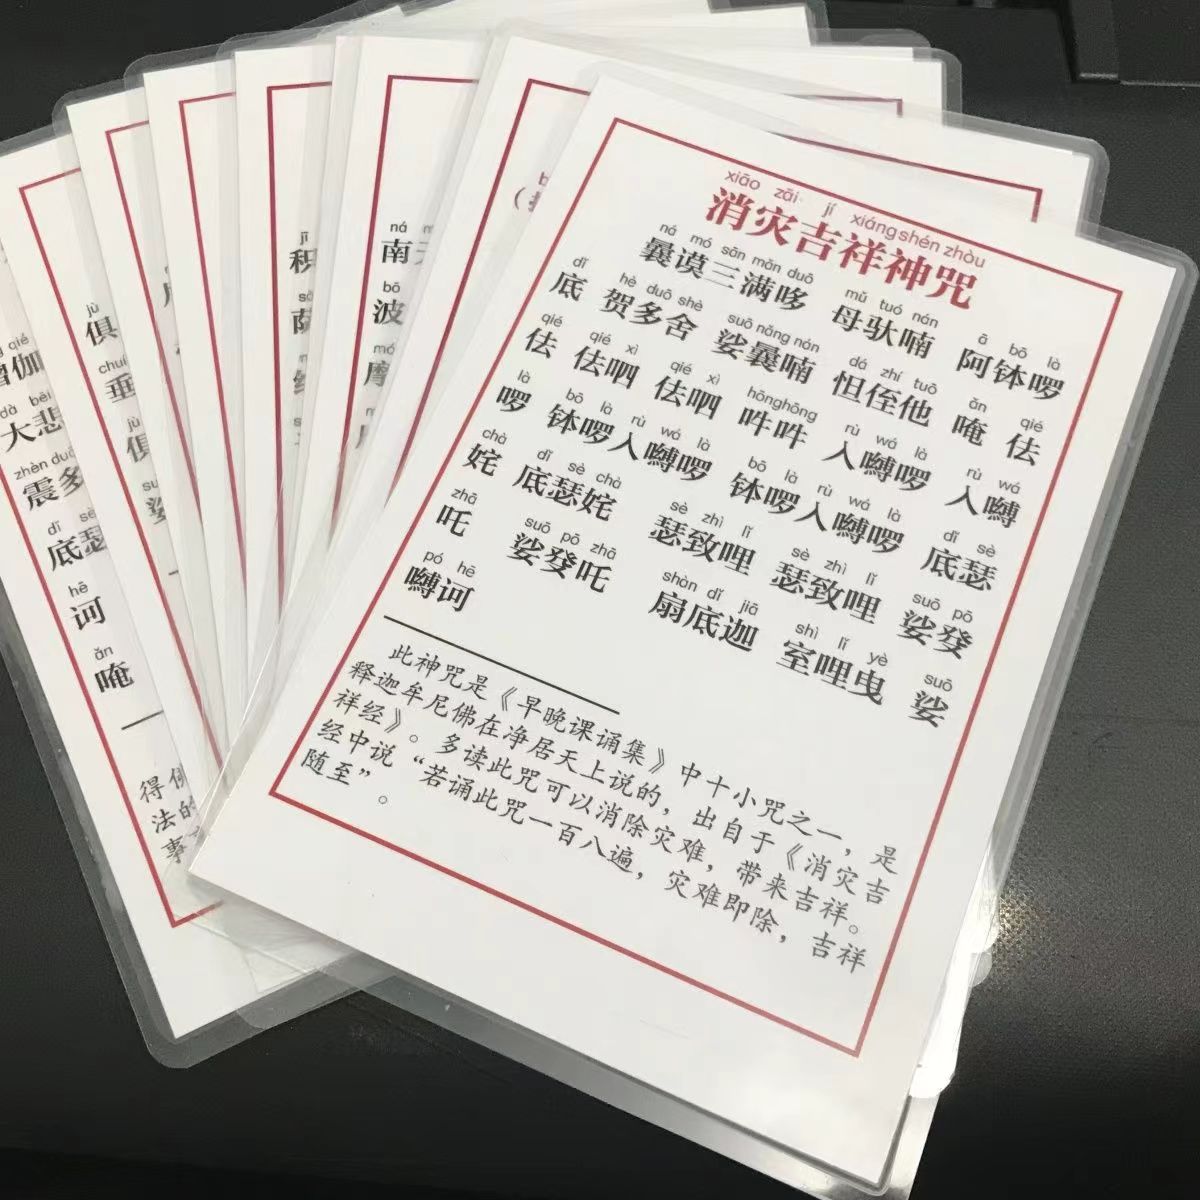 xiāo zāi jí xiáng shén zhòu
消灾吉祥神咒
ná mó sān mǎn duō mǔ tuó nán ā bō là
曩谟三满哆 母驮喃 阿钵啰
dǐ hè duō shè suō nǎng nán dá zhí tuō ǎn qié
底 贺多舍 娑曩喃 怛侄他 唵 佉
qié qié xì qié xì hōng hōng rù wá là rù wá
佉 佉呬 佉呬 吽吽 入嚩啰 入嚩
là bō là rù wá là bō là rù wá là dǐ sè
啰 钵啰入嚩啰 钵啰入嚩啰 底瑟
chà dǐ sè chà sè zhì lǐ sè zhì lǐ suō pō
姹 底瑟姹 瑟致哩 瑟致哩 娑癹
zhā suō pō zhā shàn dǐ jiā shì lǐ yè suō
吒 娑癹吒 扇底迦 室哩曳 娑
pó hē
嚩诃
此神咒是《早晚课诵集》中十小咒之一，是
释迦牟尼佛在净居天上说的，出自于《消灾吉
祥经》。多读此咒可以消除灾难，带来吉祥。
经中说“若诵此咒一百八遍，灾难即除，吉祥
随至”。
ná
南
bō
波
mó
摩
jī
积
jù
俱
chuí
垂
jù
俱
qié
伽
dà bēi
大悲
zhèn duō
震多
dǐ sè
底瑟
hē
诃
ǎn
唵
得
法的
事